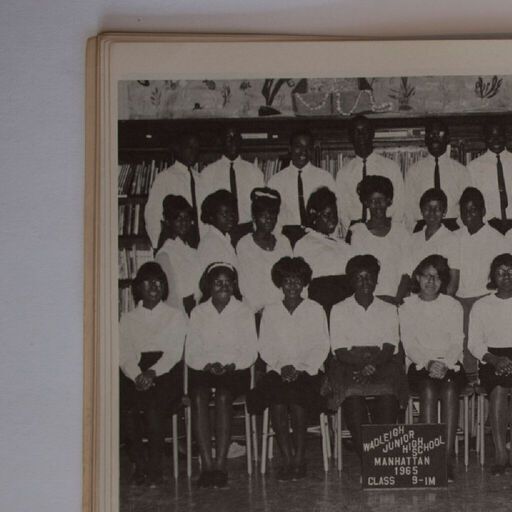 WADLEIGH
JUNIOR
HIGH
SCHOOL
MANHATTAN
1965
CLASS 9-1M